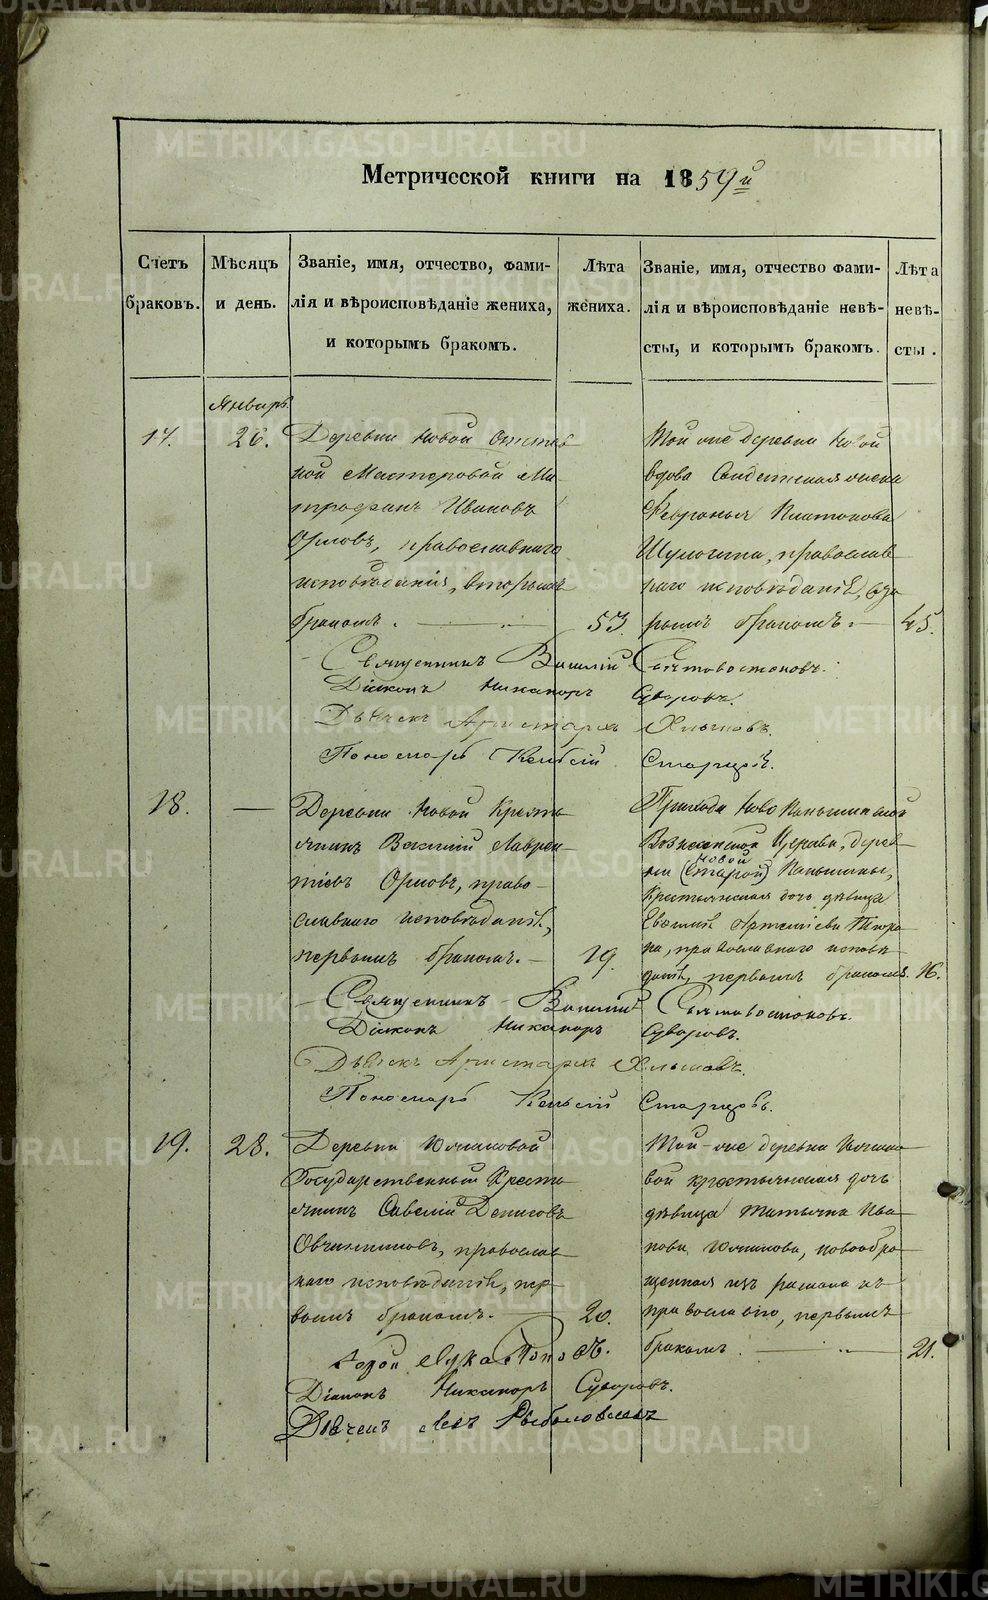 Метрической книги на 1859й
Счетъ браковъ.
Мѣсяцъ и день.
Званіе, имя, отчество, фами-
лія и вѣроисповѣданіе жениха,
и которымъ бракомъ.
Лѣта жениха.
Званіе, имя, отчество фами-
лія и вѣроисповѣданіе невѣ-
сты, и которымъ бракомъ.
Лѣта невѣ-
сты.
Январь.
17.
26.
Деревни Новой Отстав
ной Мастеровой Ми-
трофанъ Ивановъ
Орловъ, православнаго
исповѣданія, вторымъ
бракомъ.
53.
Той же деревни Новой
вдова Солдатская жена
Февронья Платонова
Шулогина, православ
наго исповѣданія, вто
рымъ бракомъ.
45.
Священникъ Василій Святовостоковъ.
Діаконъ Никаноръ Суворовъ.
Дьячекъ Аристархъ Хлыновъ.
Пономарь Старцовъ.
18.
Деревни Новой Кресть
янинъ Василій Лаврен
тіевъ Орловъ, право-
славнаго исповѣданія,
первымъ бракомъ.
19.
Прихода Ново Паньшинской
Вознесенской Церкви, дерев-
новой
ни (Старой) Паньшины,
Крестьянская дочь дѣвица
Артеміева
на, православнаго исповѣ
данія, первымъ бракомъ.
16.
Священникъ Василій Святовостоковъ.
Діаконъ Никаноръ Суворовъ.
Дьячекъ Аристархъ Хлыновъ.
Пономарь Старцовъ.
19.
28.
Деревни Ключиковой
Государственный Кресть
янинъ Савелій Денисовъ
Овчинниковъ, православ
наго исповѣданія, пер-
вымъ бракомъ.
20.
Той-же деревни Ключико
вой крестьянская дочь
дѣвица Татьяна Ива
нова Ключикова, новообра
щенная изъ раскола къ
православію, первымъ
бракомъ.
21.
Лука Поповъ.
Діаконъ Никаноръ Суворовъ.
Дьячекъ Левъ Рыболовлевъ
METRIKI.GASO-URAL.RU